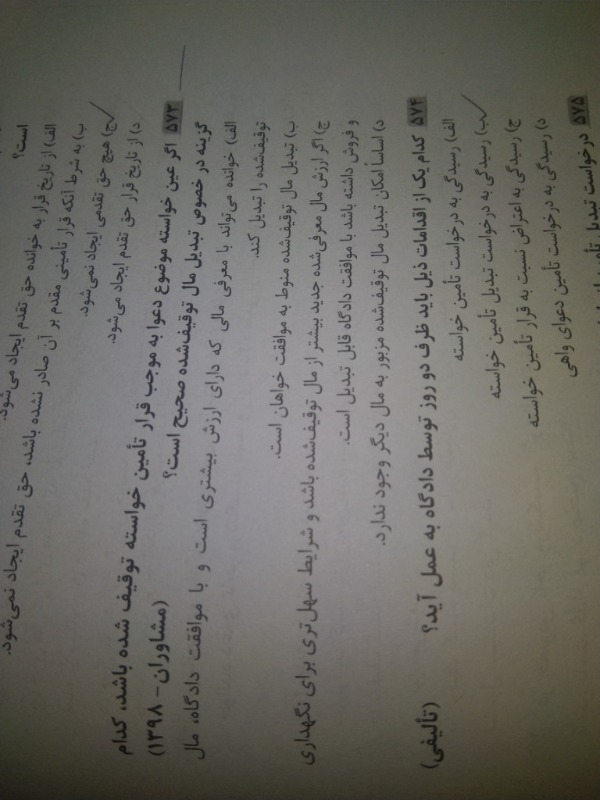 است؟
الف) از تاریخ قرار به خوانده حق تقدم ایجاد می‌شود.
ب) به شرط آنکه قرار تأمینی مقدم بر آن صادر نشده باشد، حق تقدم ایجاد نمی‌شود.
ج) هیچ حق تقدمی ایجاد نمی‌شود.
د) از تاریخ قرار حق تقدم ایجاد می‌شود.
۵۷۳ اگر عین خواسته موضوع دعوا به موجب قرار تأمین خواسته توقیف شده باشد، کدام
گزینه در خصوص تبدیل مال توقیف‌شده صحیح است؟ (مشاوران - ۱۳۹۸)
الف) خوانده می‌تواند با معرفی مالی که دارای ارزش بیشتری است و با موافقت دادگاه، مال
توقیف‌شده را تبدیل کند.
ب) تبدیل مال توقیف‌شده منوط به موافقت خواهان است.
ج) اگر ارزش مال معرفی‌شده جدید بیشتر از مال توقیف‌شده باشد و شرایط سهل‌تری برای نگهداری
و فروش داشته باشد با موافقت دادگاه قابل تبدیل است.
د) اساساً امکان تبدیل مال توقیف‌شده مزبور به مال دیگر وجود ندارد.
۵۷۴ کدام یک از اقدامات ذیل باید ظرف دو روز توسط دادگاه به عمل آید؟ (تألیفی)
الف) رسیدگی به درخواست تأمین خواسته
ب) رسیدگی به درخواست تبدیل تأمین خواسته
ج) رسیدگی به اعتراض نسبت به قرار تأمین خواسته
د) رسیدگی به درخواست تأمین دعوای واهی
۵۷۵ درخواست تبدیل تأمین از